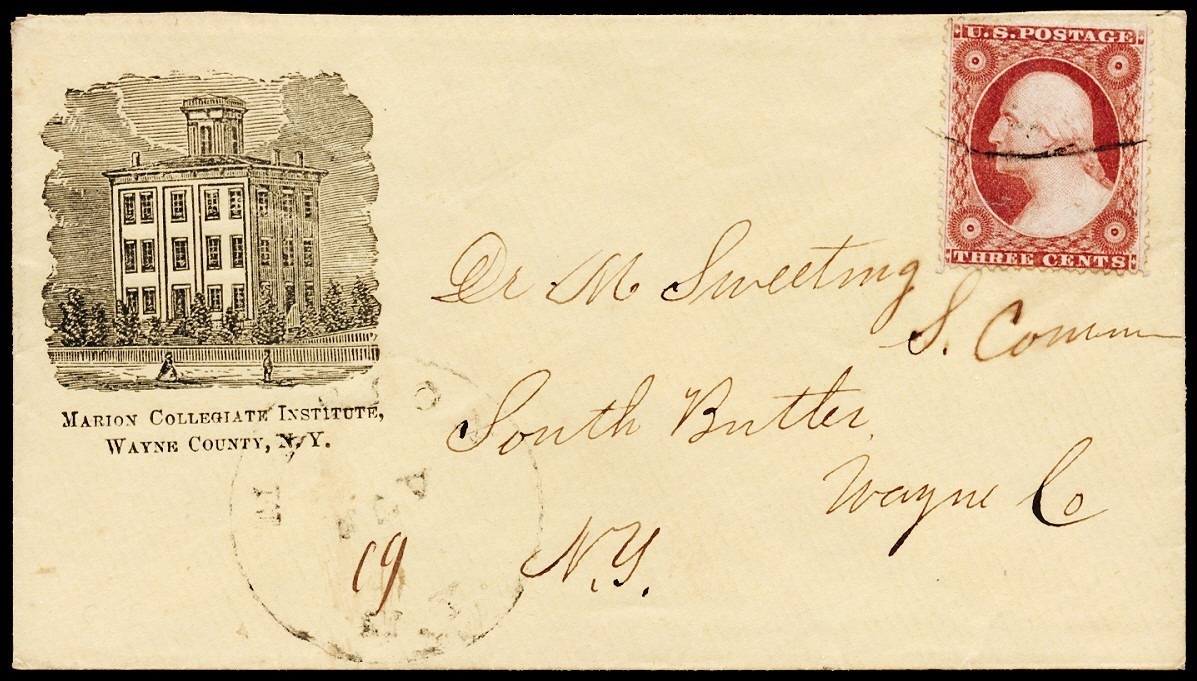 U.S. POSTAGE
THREE CENTS
MARION COLLEGIATE INSTITUTE,
WAYNE COUNTY, N.Y.
Dr M Sweeting
S. Comm
South Butler
Wayne Co
N.Y.
19